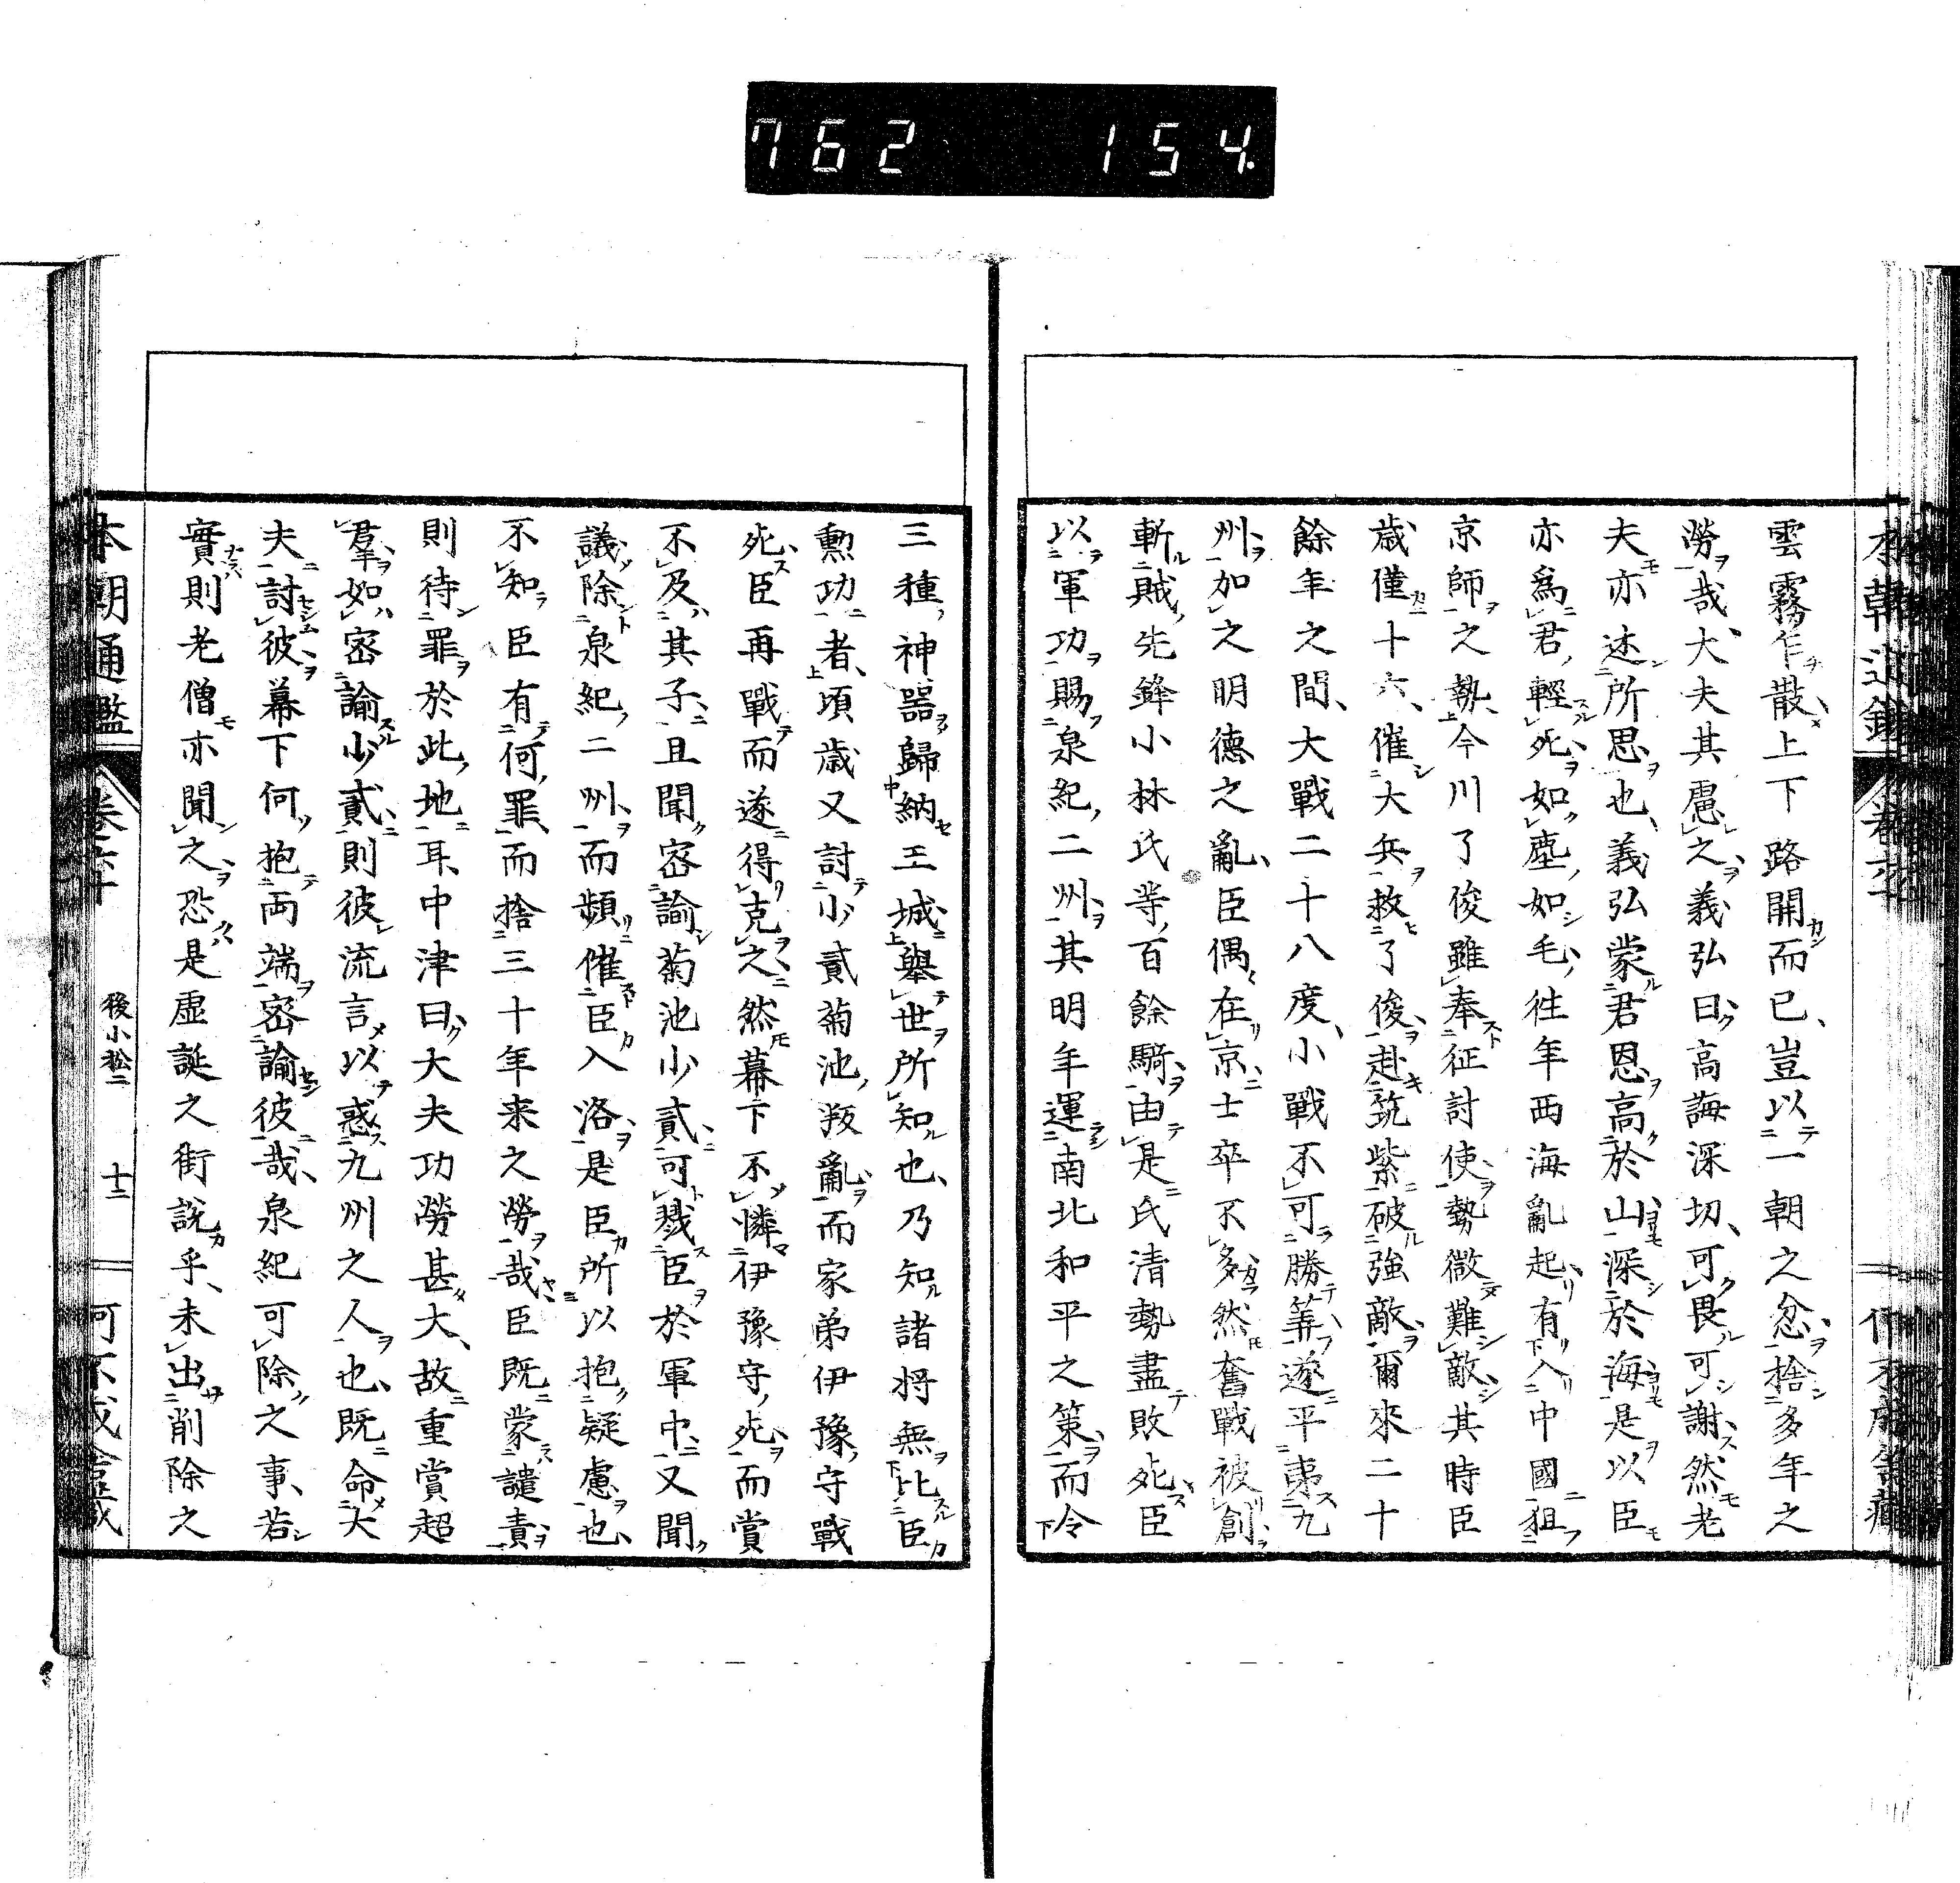 762 154
雲霧乍散上下路開而已、豈以一朝之忿捨多年之
勞哉、大夫其慮之義弘曰高誨深切、可畏可謝、然老
夫亦述所思也、義弘蒙君恩高於山深於海是以臣
亦爲君輕死如塵如毛、往年西海亂起有入中國狙
京師之執今川了俊雖奉征討使勢微難敵其時臣
歳僅十六、催大兵救了俊赴筑紫破強敵爾來二十
餘年之間、大戰二十八度、小戰不可勝筭遂平夷九
州加之明德之亂、臣偶在京士卒不多然奮戰被創
斬賊先鋒小林氏等百餘騎由是氏清勢盡敗死臣
以軍功賜泉紀二州其明年運南北和平之策而令
三種神器歸納王城擧世所知也、乃知諸將無比臣
勳功者、頃歳又討小貳菊池叛亂而家弟伊豫守戰
死臣再戰而遂得克之然幕下不憐伊豫守死而賞
不及其子且聞密諭菊池少貳可戮臣於軍中又聞
議除泉紀二州而頻催臣入洛是臣所以抱疑慮也、
不知臣有何罪而捨三十年来之勞哉臣既蒙譴責
則待罪於此地耳、中津曰大夫功勞甚大、故重賞超
羣如密諭少貳則彼流言以惑九州之人也、既命大
夫討彼幕下何抱両端密諭彼哉、泉紀可除之事、若
實則老僧亦聞之恐是虛誕之街説乎、未出削除之
本朝通鑑 卷六十 後小松二 十二